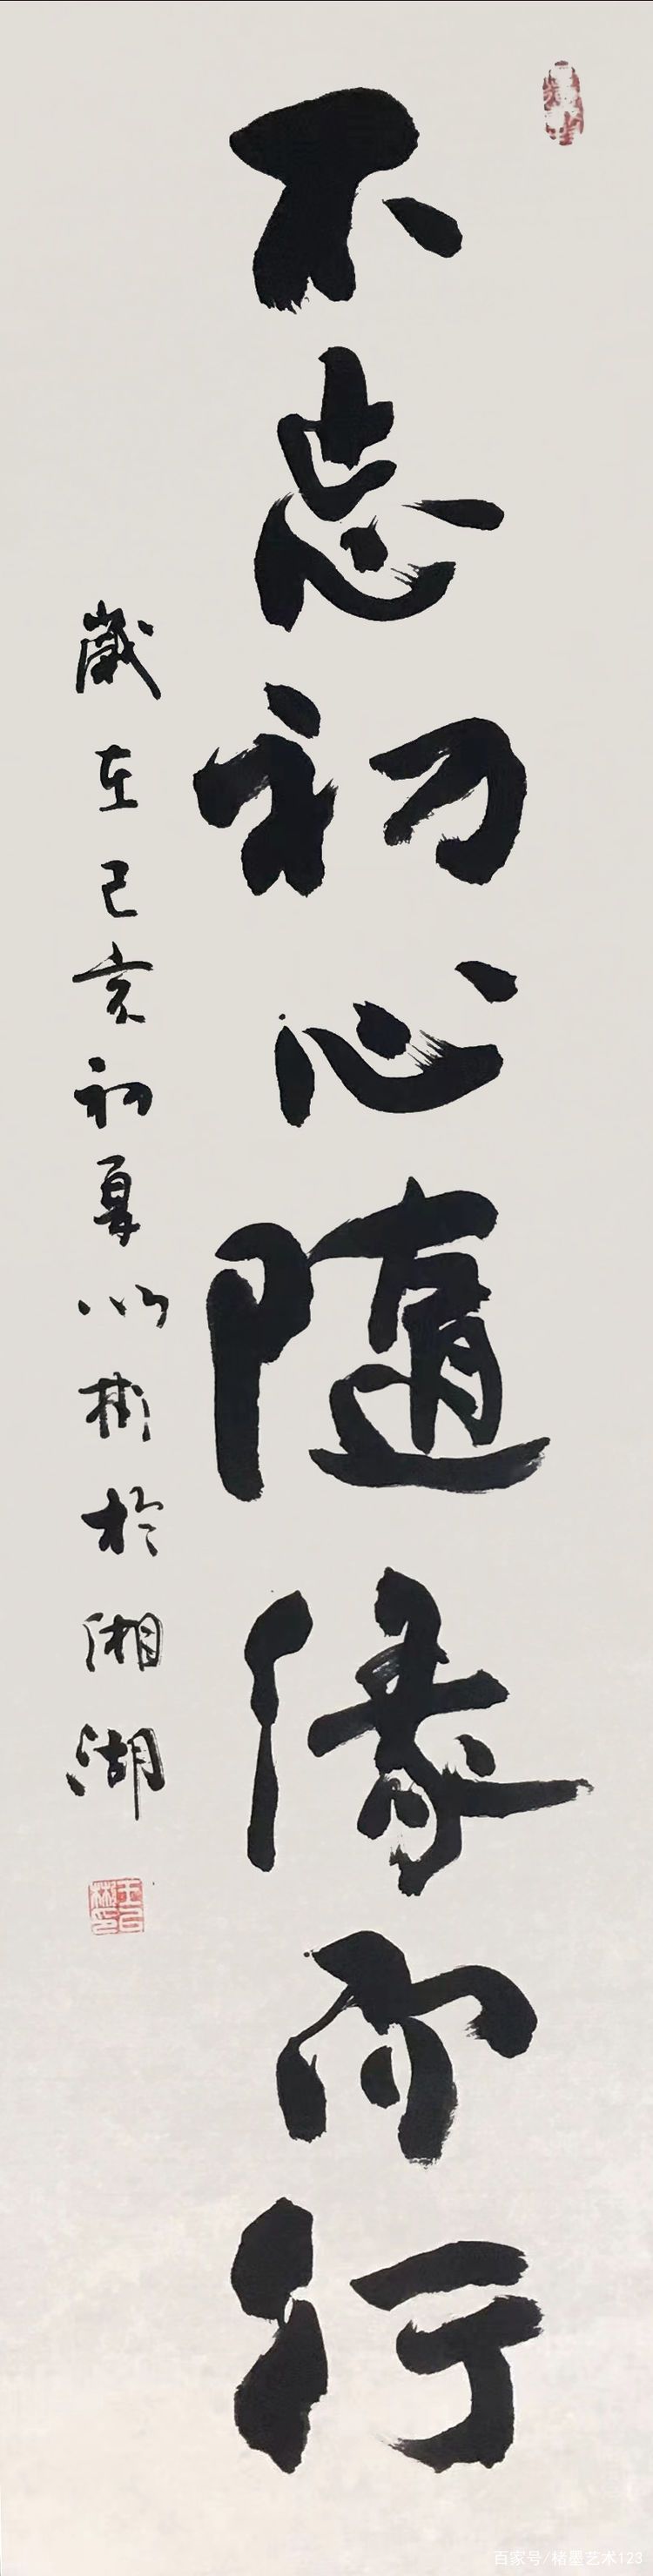 不忘初心随缘而行
歲在己亥初夏以彬於湘湖
百家号/楮墨艺术123